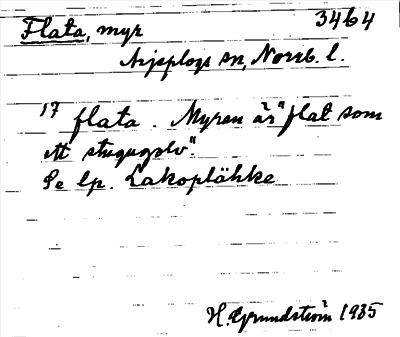 Flata, myr 3464
Arjeplogs sn, Norrb. l.
17 flata. Myren är "flat som
ett stugugolv".
Se lp. Lakoplåhke
H. Grundström 1935